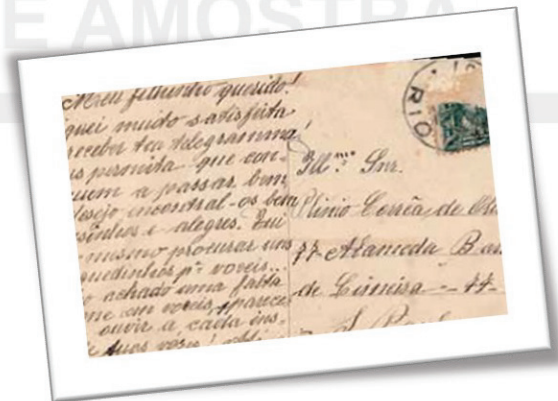 E AMOSTRA
Meu filhinho querido!
quei muito satisfeita
receber teu telegramma,
s permita que con-
uem a passar bem
desejo encontral-os bem
sinhos e alegres. Fui
mesmo procurar uns
quedinhos pª voceis...
o achado uma falta
me em voceis, parece
ouvir a cada ins-
tuas vozes!
RIO
Ill.mo Snr.
Plinio Corrêa de Oli
77 Alameda Ba
de Limeira - 77-
S. Paulo